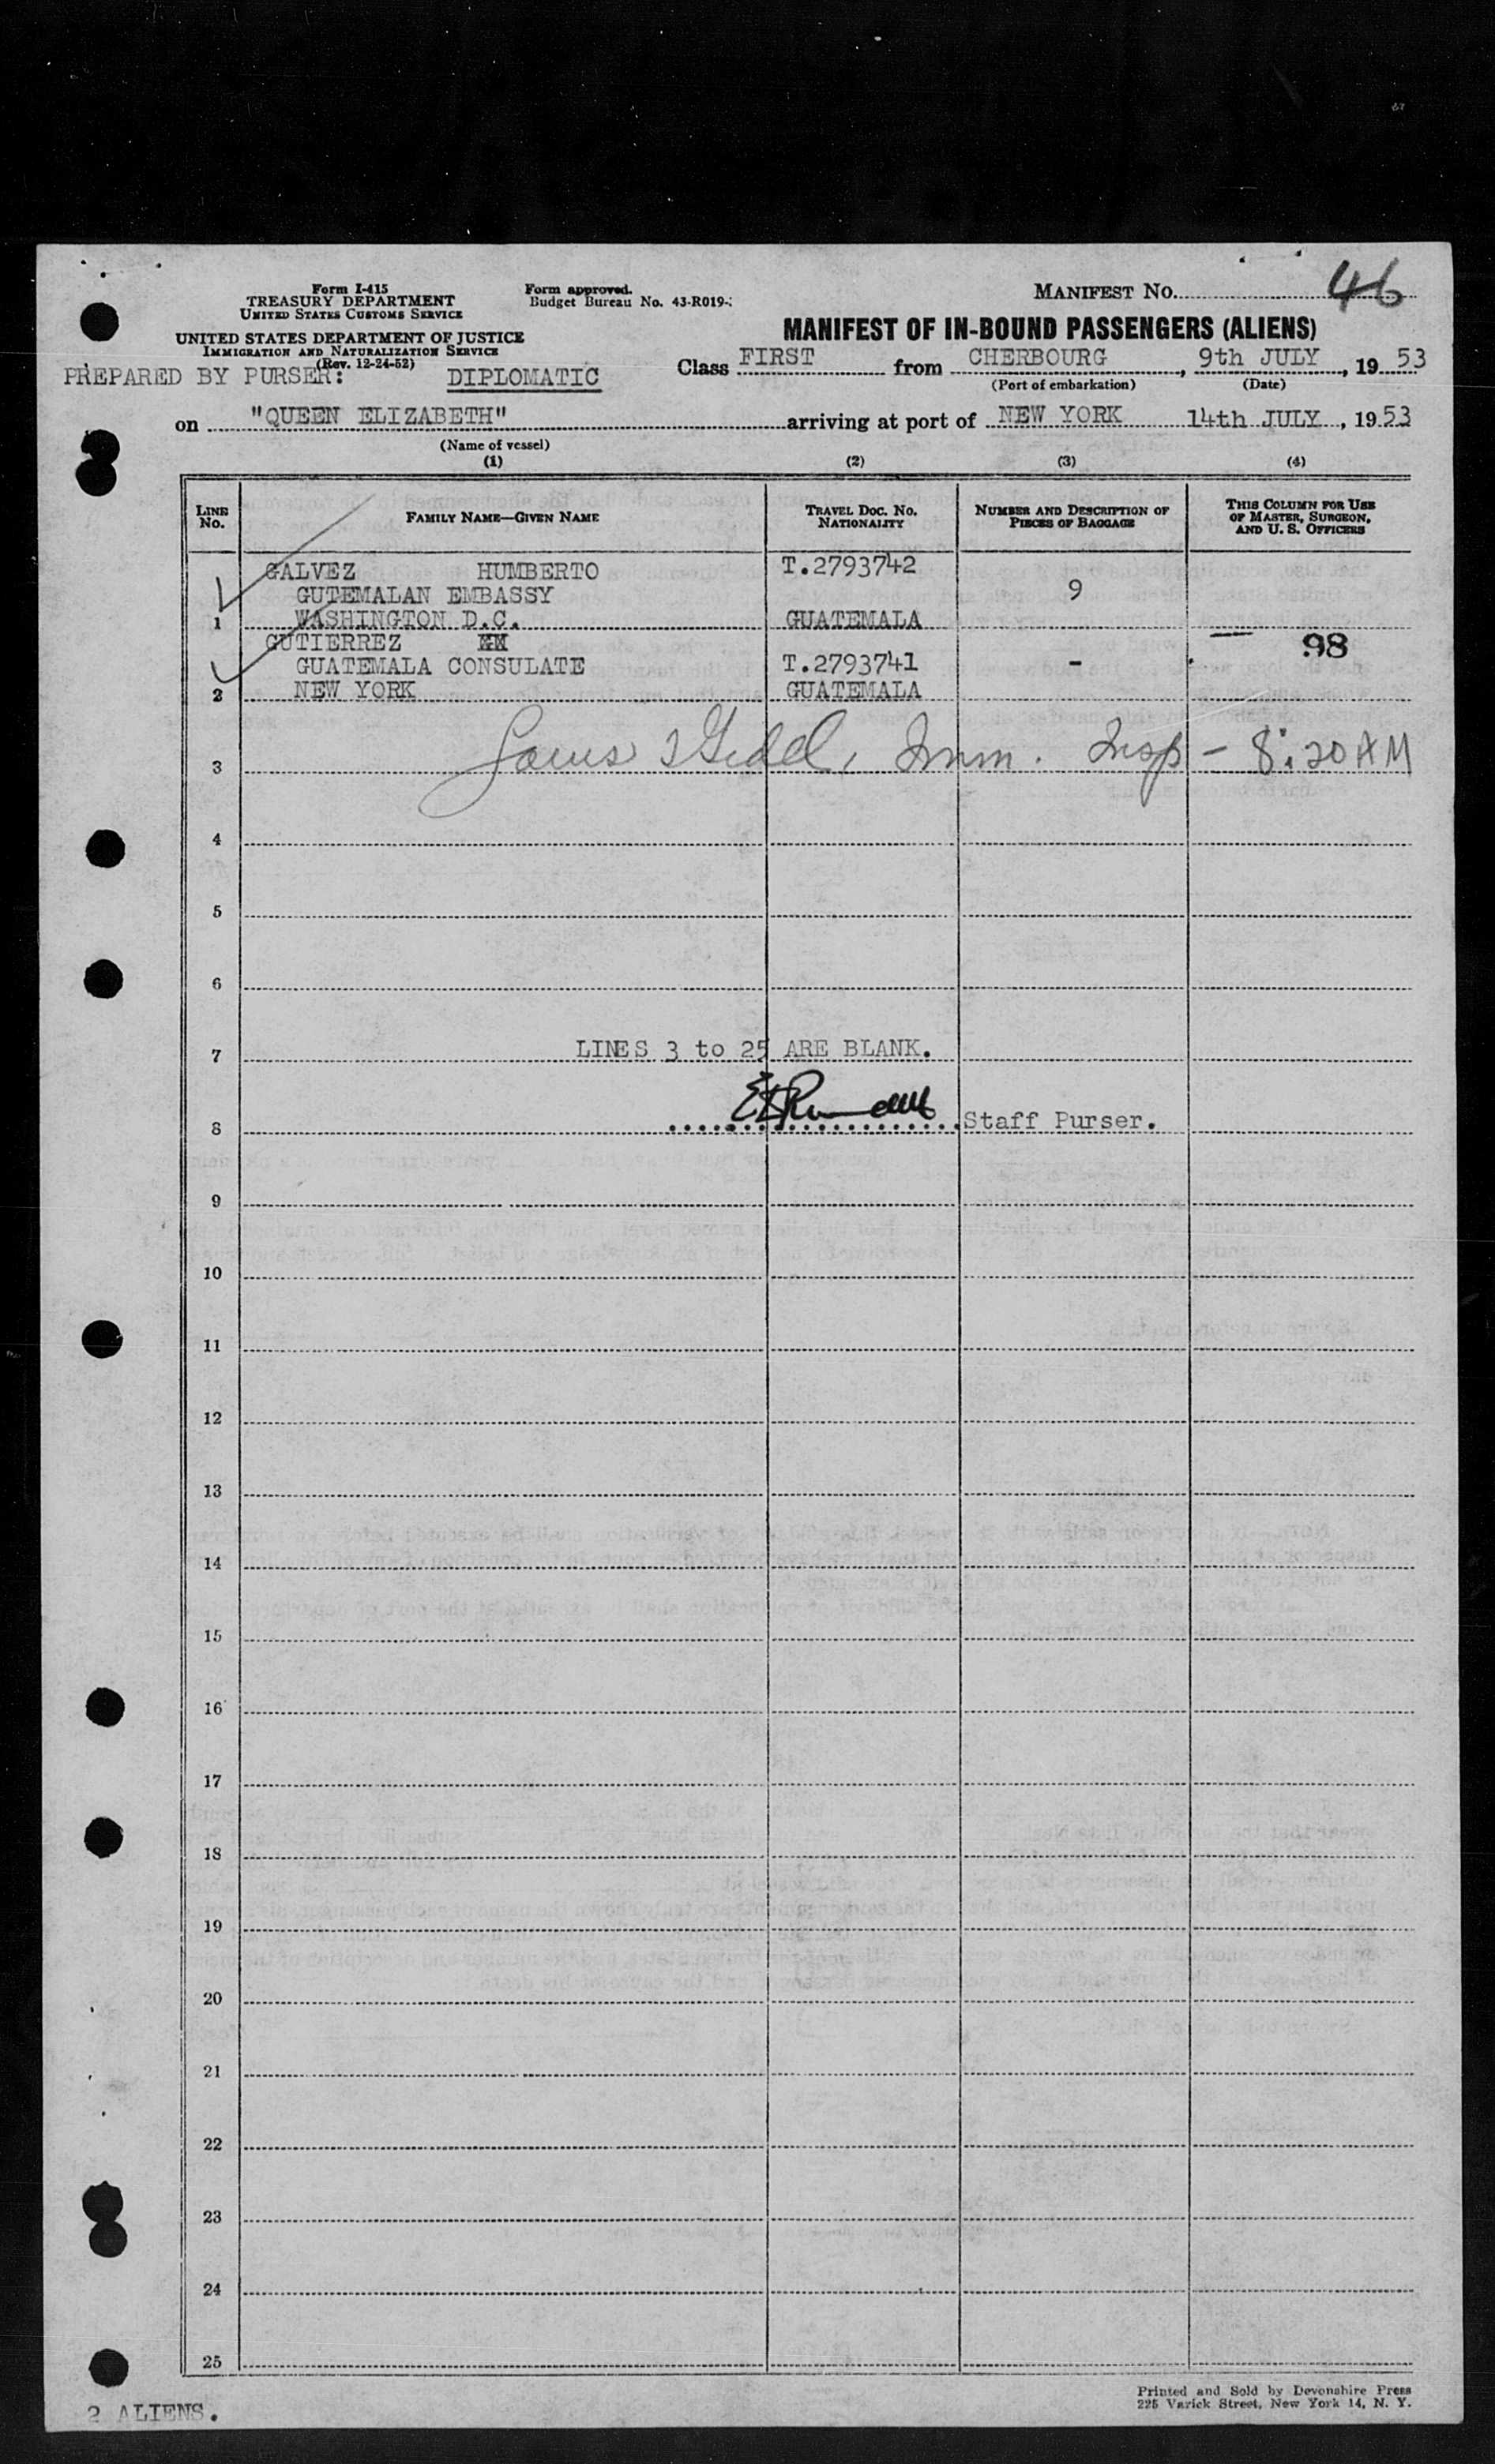 46
Form I-415
TREASURY DEPARTMENT
UNITED STATES CUSTOMS SERVICE
Form approved.
Budget Bureau No. 43-R019-
MANIFEST NO.
UNITED STATES DEPARTMENT OF JUSTICE
IMMIGRATION AND NATURALIZATION SERVICE
(Rev. 12-24-52)
MANIFEST OF IN-BOUND PASSENGERS (ALIENS)
PREPARED BY PURSER: DIPLOMATIC
Class FIRST from CHERBOURG, 9th JULY, 1953
(Port of embarkation) (Date)
on "QUEEN ELIZABETH" arriving at port of NEW YORK 14th JULY, 1953
(Name of vessel)
(1) (2) (3) (4)
LINE NO.
FAMILY NAME—GIVEN NAME
TRAVEL DOC. NO. NATIONALITY
NUMBER AND DESCRIPTION OF PIECES OF BAGGAGE
THIS COLUMN FOR USE OF MASTER, SURGEON, AND U. S. OFFICERS
GALVEZ HUMBERTO T.2793742
GUTEMALAN EMBASSY 9
1 WASHINGTON D.C. GUATEMALA
GUTIERREZ 98
GUATEMALA CONSULATE T.2793741 -
2 NEW YORK GUATEMALA
3 Imm. Insp - 8:20 AM
4
5
6
7 LINES 3 to 25 ARE BLANK.
8 Staff Purser.
9
10
11
12
13
14
15
16
17
18
19
20
21
22
23
24
25
2 ALIENS.
Printed and Sold by Devonshire Press
225 Varick Street, New York 14, N. Y.